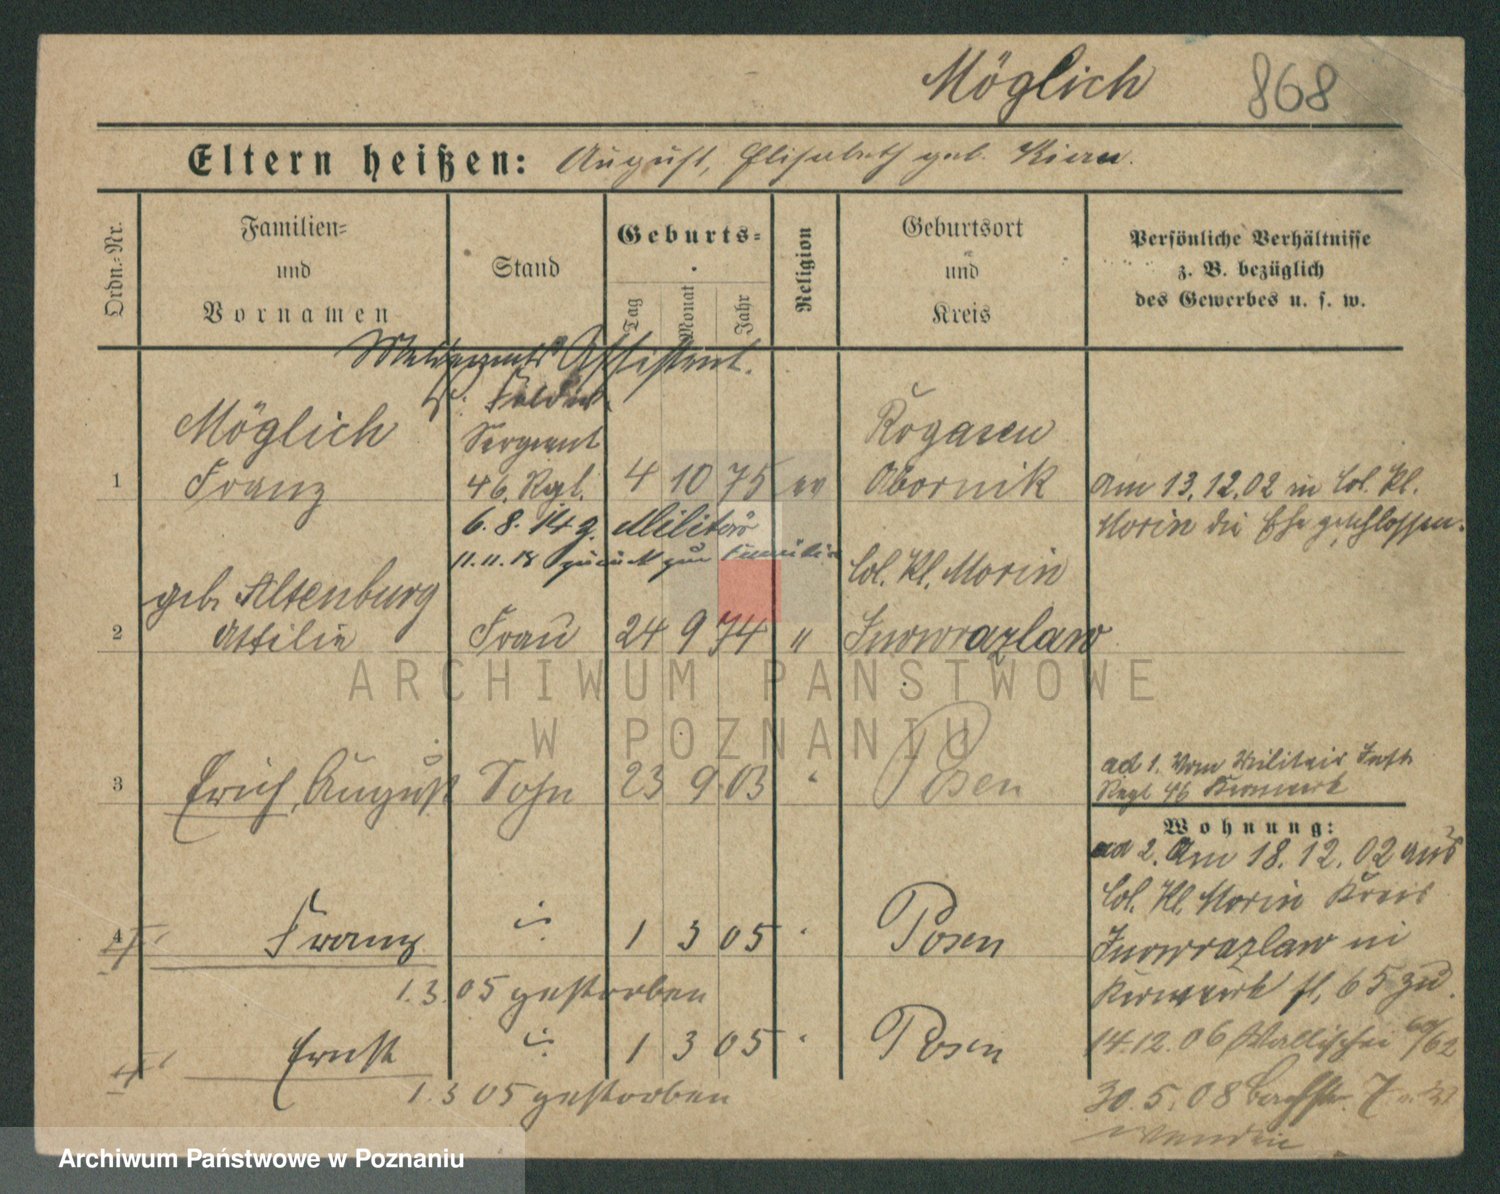 Möglich 868
Eltern heißen: August, Elisabeth geb. Kiern.
Ordn.-Nr.
Familien-
und
Vornamen
Stand
Geburts-
Tag
Monat
Jahr
Religion
Geburtsort
und
Kreis
Persönliche Verhältnisse
z. B. bezüglich
des Gewerbes u. s. w.
Assistent.
Möglich
Sergeant
Rogasen
1 Franz 46. Rgt. 4 10 75 ev Obornik Am 13.12.02 in Col. Kl.
6.8.14 z. Militär
Morin die Ehe geschlossen.
11.11.18 zurück zur Familie
geb. Altenburg
Col. Kl. Morin
2 Ottilie Frau 24 9 74 " Inowrazlaw
3 Erich, August Sohn 23 9 03 " Posen
ad 1. Vom Militair Inft.
Regt 46 Kernwerk
Wohnung:
ad 2. Am 18.12.02 aus
Col. Kl. Morin Kreis
4 Franz 1 3 05 " Posen
Inowrazlaw in
1.3.05 gestorben
Kernwerk fl. 65 zu.
Ernst 1 3 05 " Posen
14.12.06 Wallischei 60/62
1.3 05 gestorben
30.5.08 Bachstr. 7
ARCHIWUM PAŃSTWOWE
W POZNANIU
Archiwum Państwowe w Poznaniu